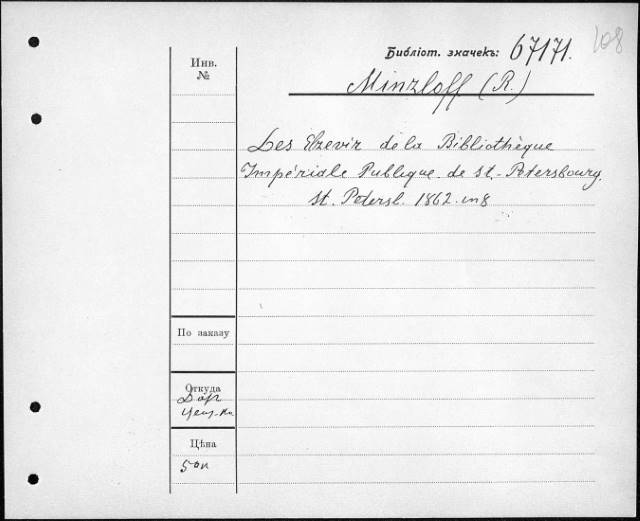 Библіот. значекъ: 67171. 108
Инв.
№
Minzloff (R.)
Les Elzevir de la Bibliothèque
Impériale Publique de St.-Petersbourg.
St. Petersb. 1862. in 8
По заказу
Откуда
Цѣна
50к